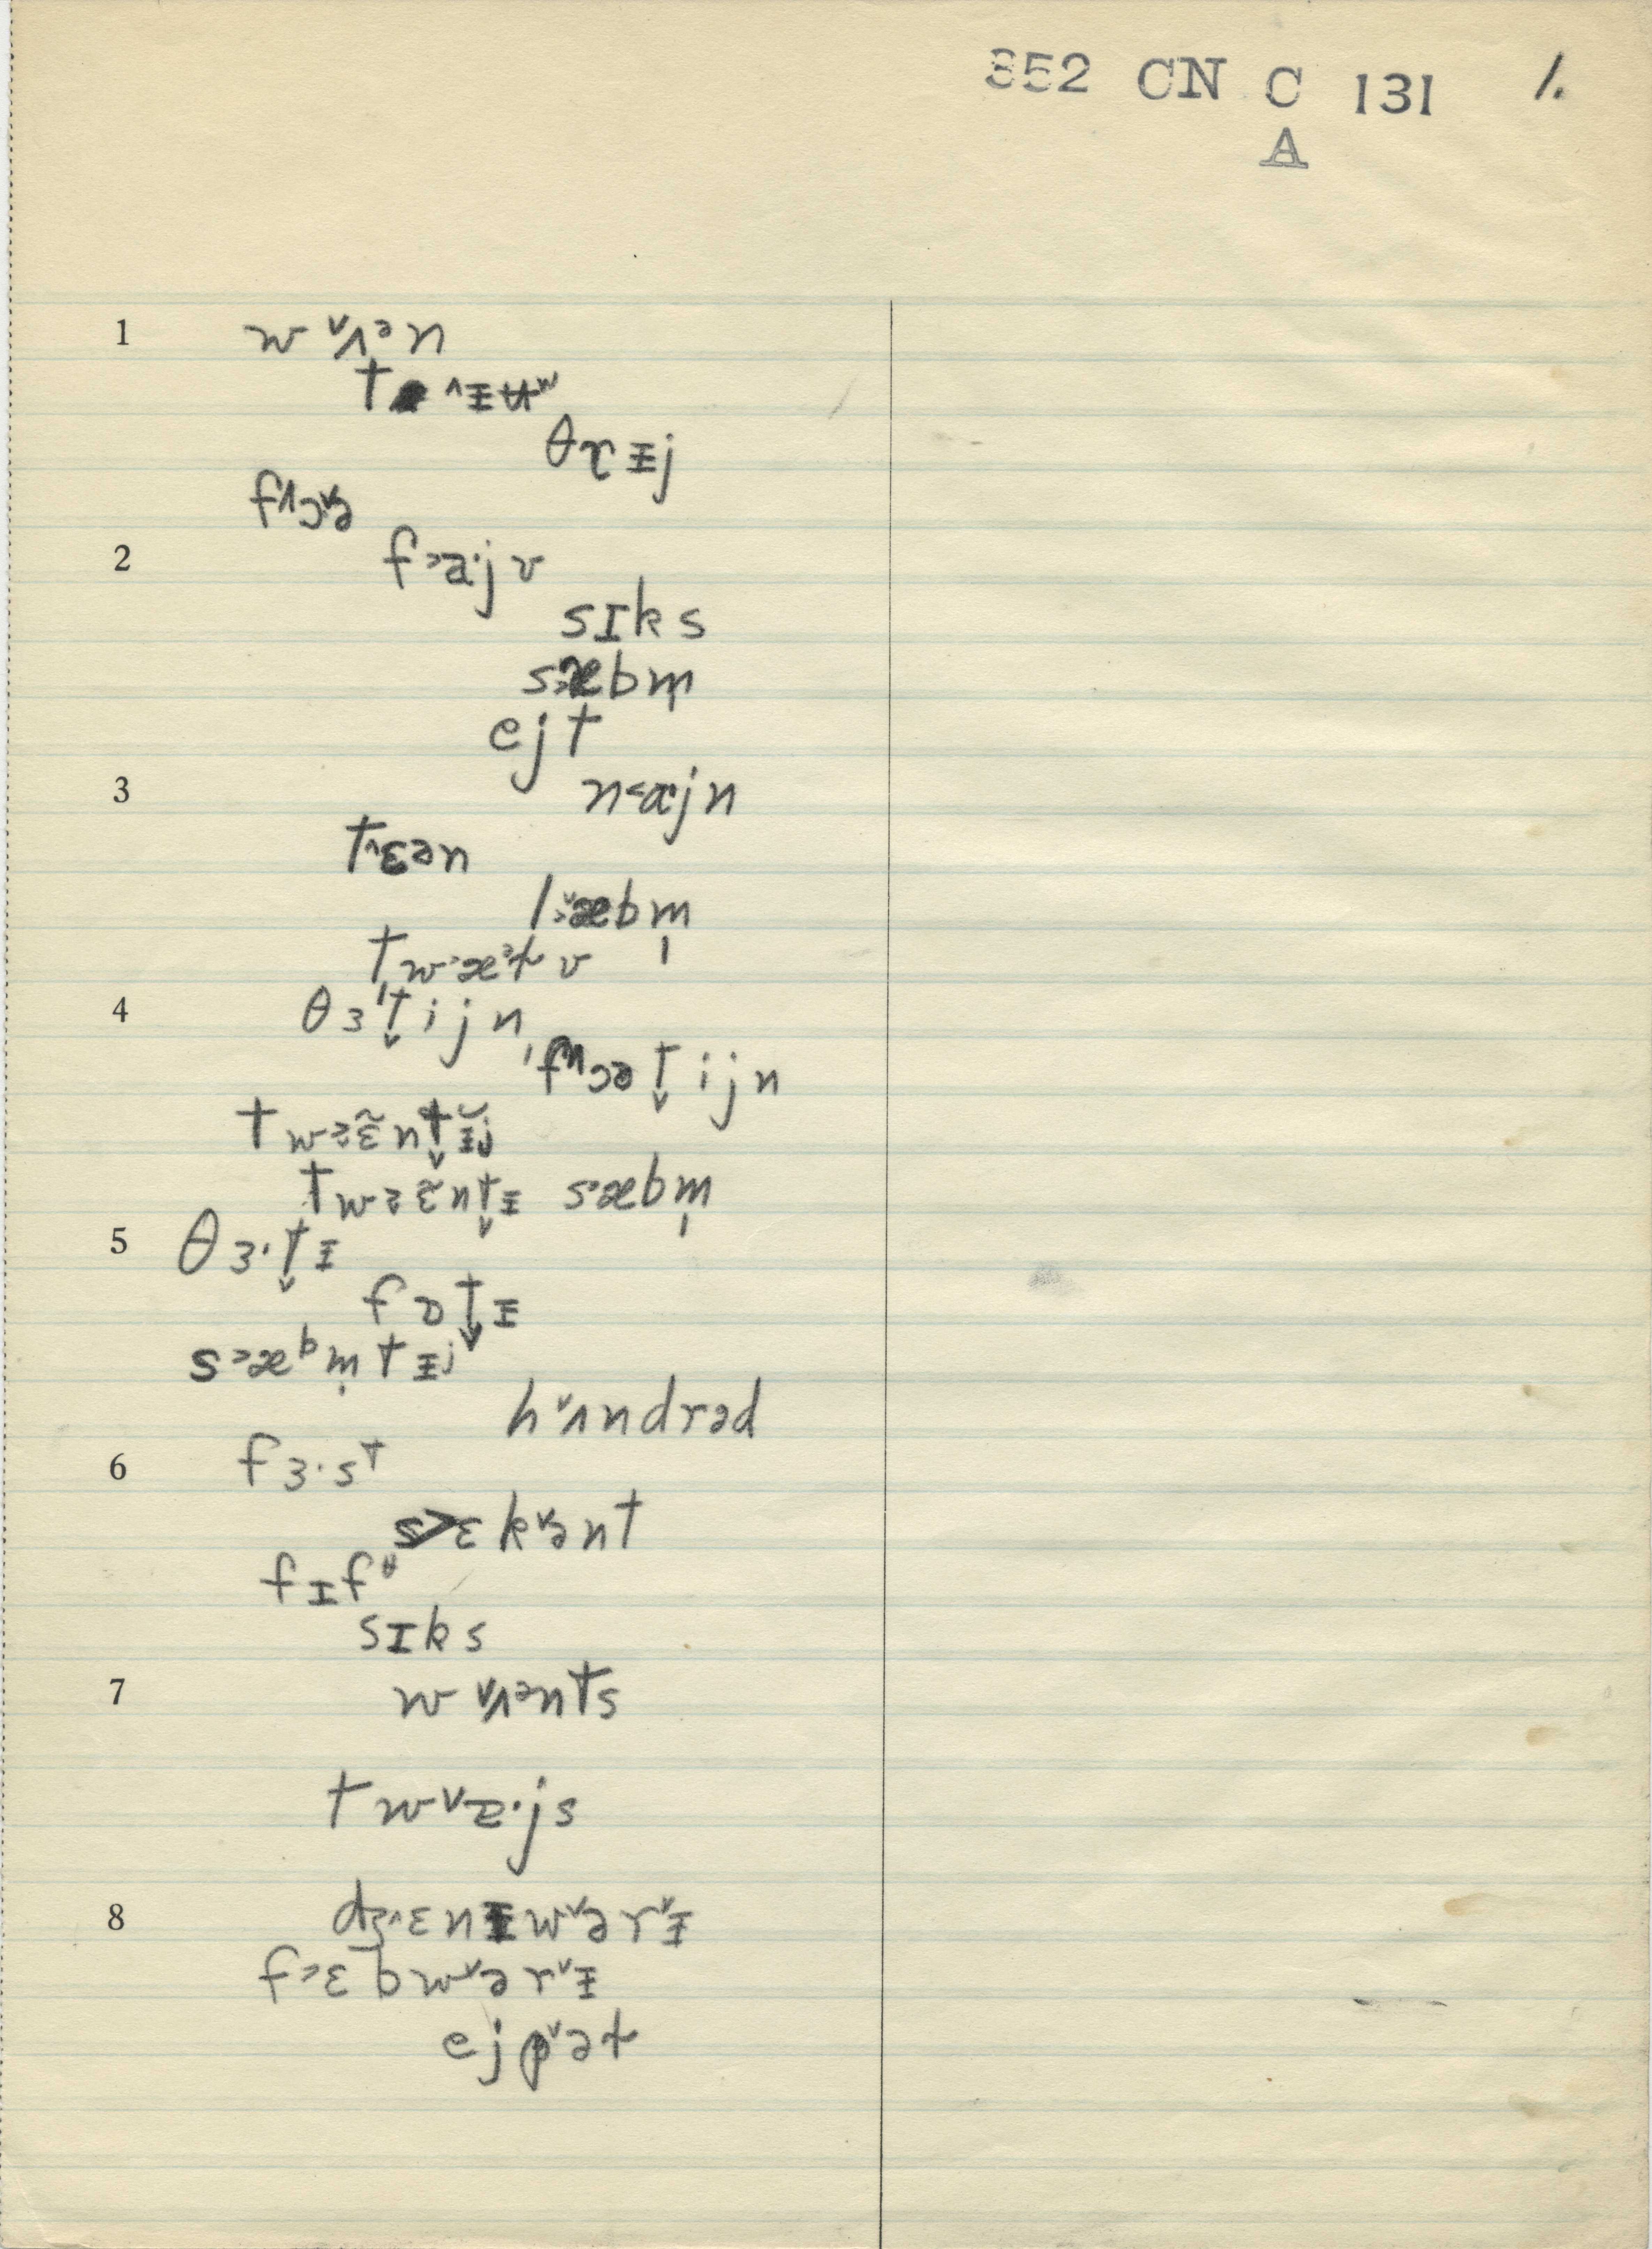 352 CN C 131 1.
A
1 w ˅ʌᵊn
t ˄ᵻʉʷ
θɤᵻj
f˄ɔ˅ə
2 f˃a·jv
sɪks
s˃æbm̩
ejt
3 n˂ɑ·jn
t˄ɛən
l˅˃æbm̩
tw˃æᵊɫv
4 θɜ't̬ijn
ˌf˄ɔət̬ijn
tw˃ɛ̃nt̬ᵻ̆j
tw˃ɛ̃nt̬ᵻ s˃æbm̩
5 θɜ·t̬ᵻ
fɒt̬ᵻ
s˃æᵇm̩tᵻj
h˅ʌndrəd
6 fɜ·sᵗ
s˃ɛk˅ənt
fɪfᶿ
sɪks
7 w ˅ʌᵊnts
tw˅ɐ·js
8 dʒ˄ɛnᵻw˅ər˅ᵻ
f˃ɛbw˅ər˅ᵻ
ejp˅əɫ